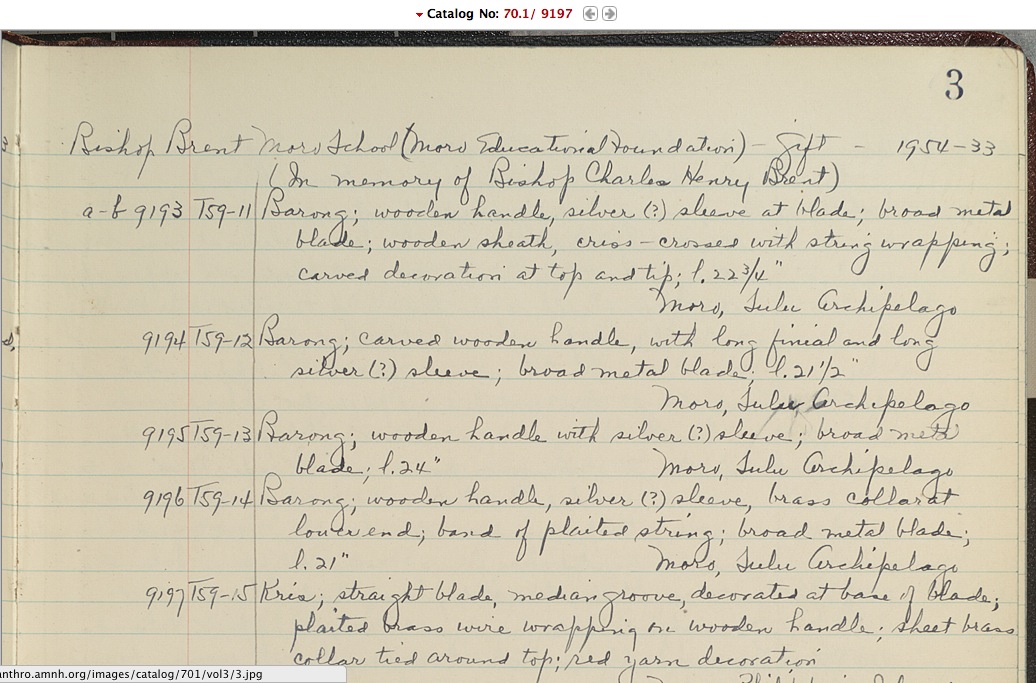 Catalog No: 70.1/ 9197
3
Bishop Brent Moro School (Moro Educational Foundation) - Gift - 1954-33
(In memory of Bishop Charles Henry Brent)
a-b 9193 T59-11 Barong; wooden handle, silver (?) sleeve at blade; broad metal
blade; wooden sheath, criss-crossed with string wrapping;
carved decoration at top and tip; l. 22 3/4"
Moro, Sulu Archipelago
9194 T59-12 Barong; carved wooden handle, with long finial and long
silver (?) sleeve; broad metal blade; l. 21 1/2"
Moro, Sulu Archipelago
9195 T59-13 Barong; wooden handle with silver (?) sleeve; broad metal
blade; l. 24" Moro, Sulu Archipelago
9196 T59-14 Barong; wooden handle, silver (?) sleeve, brass collar at
lower end; band of plaited string; broad metal blade;
l. 21" Moro, Sulu Archipelago
9197 T59-15 Kris; straight blade, median groove, decorated at base of blade;
plaited brass wire wrapping on wooden handle; sheet brass
collar tied around top; red yarn decoration
anthro.amnh.org/images/catalog/701/vol3/3.jpg